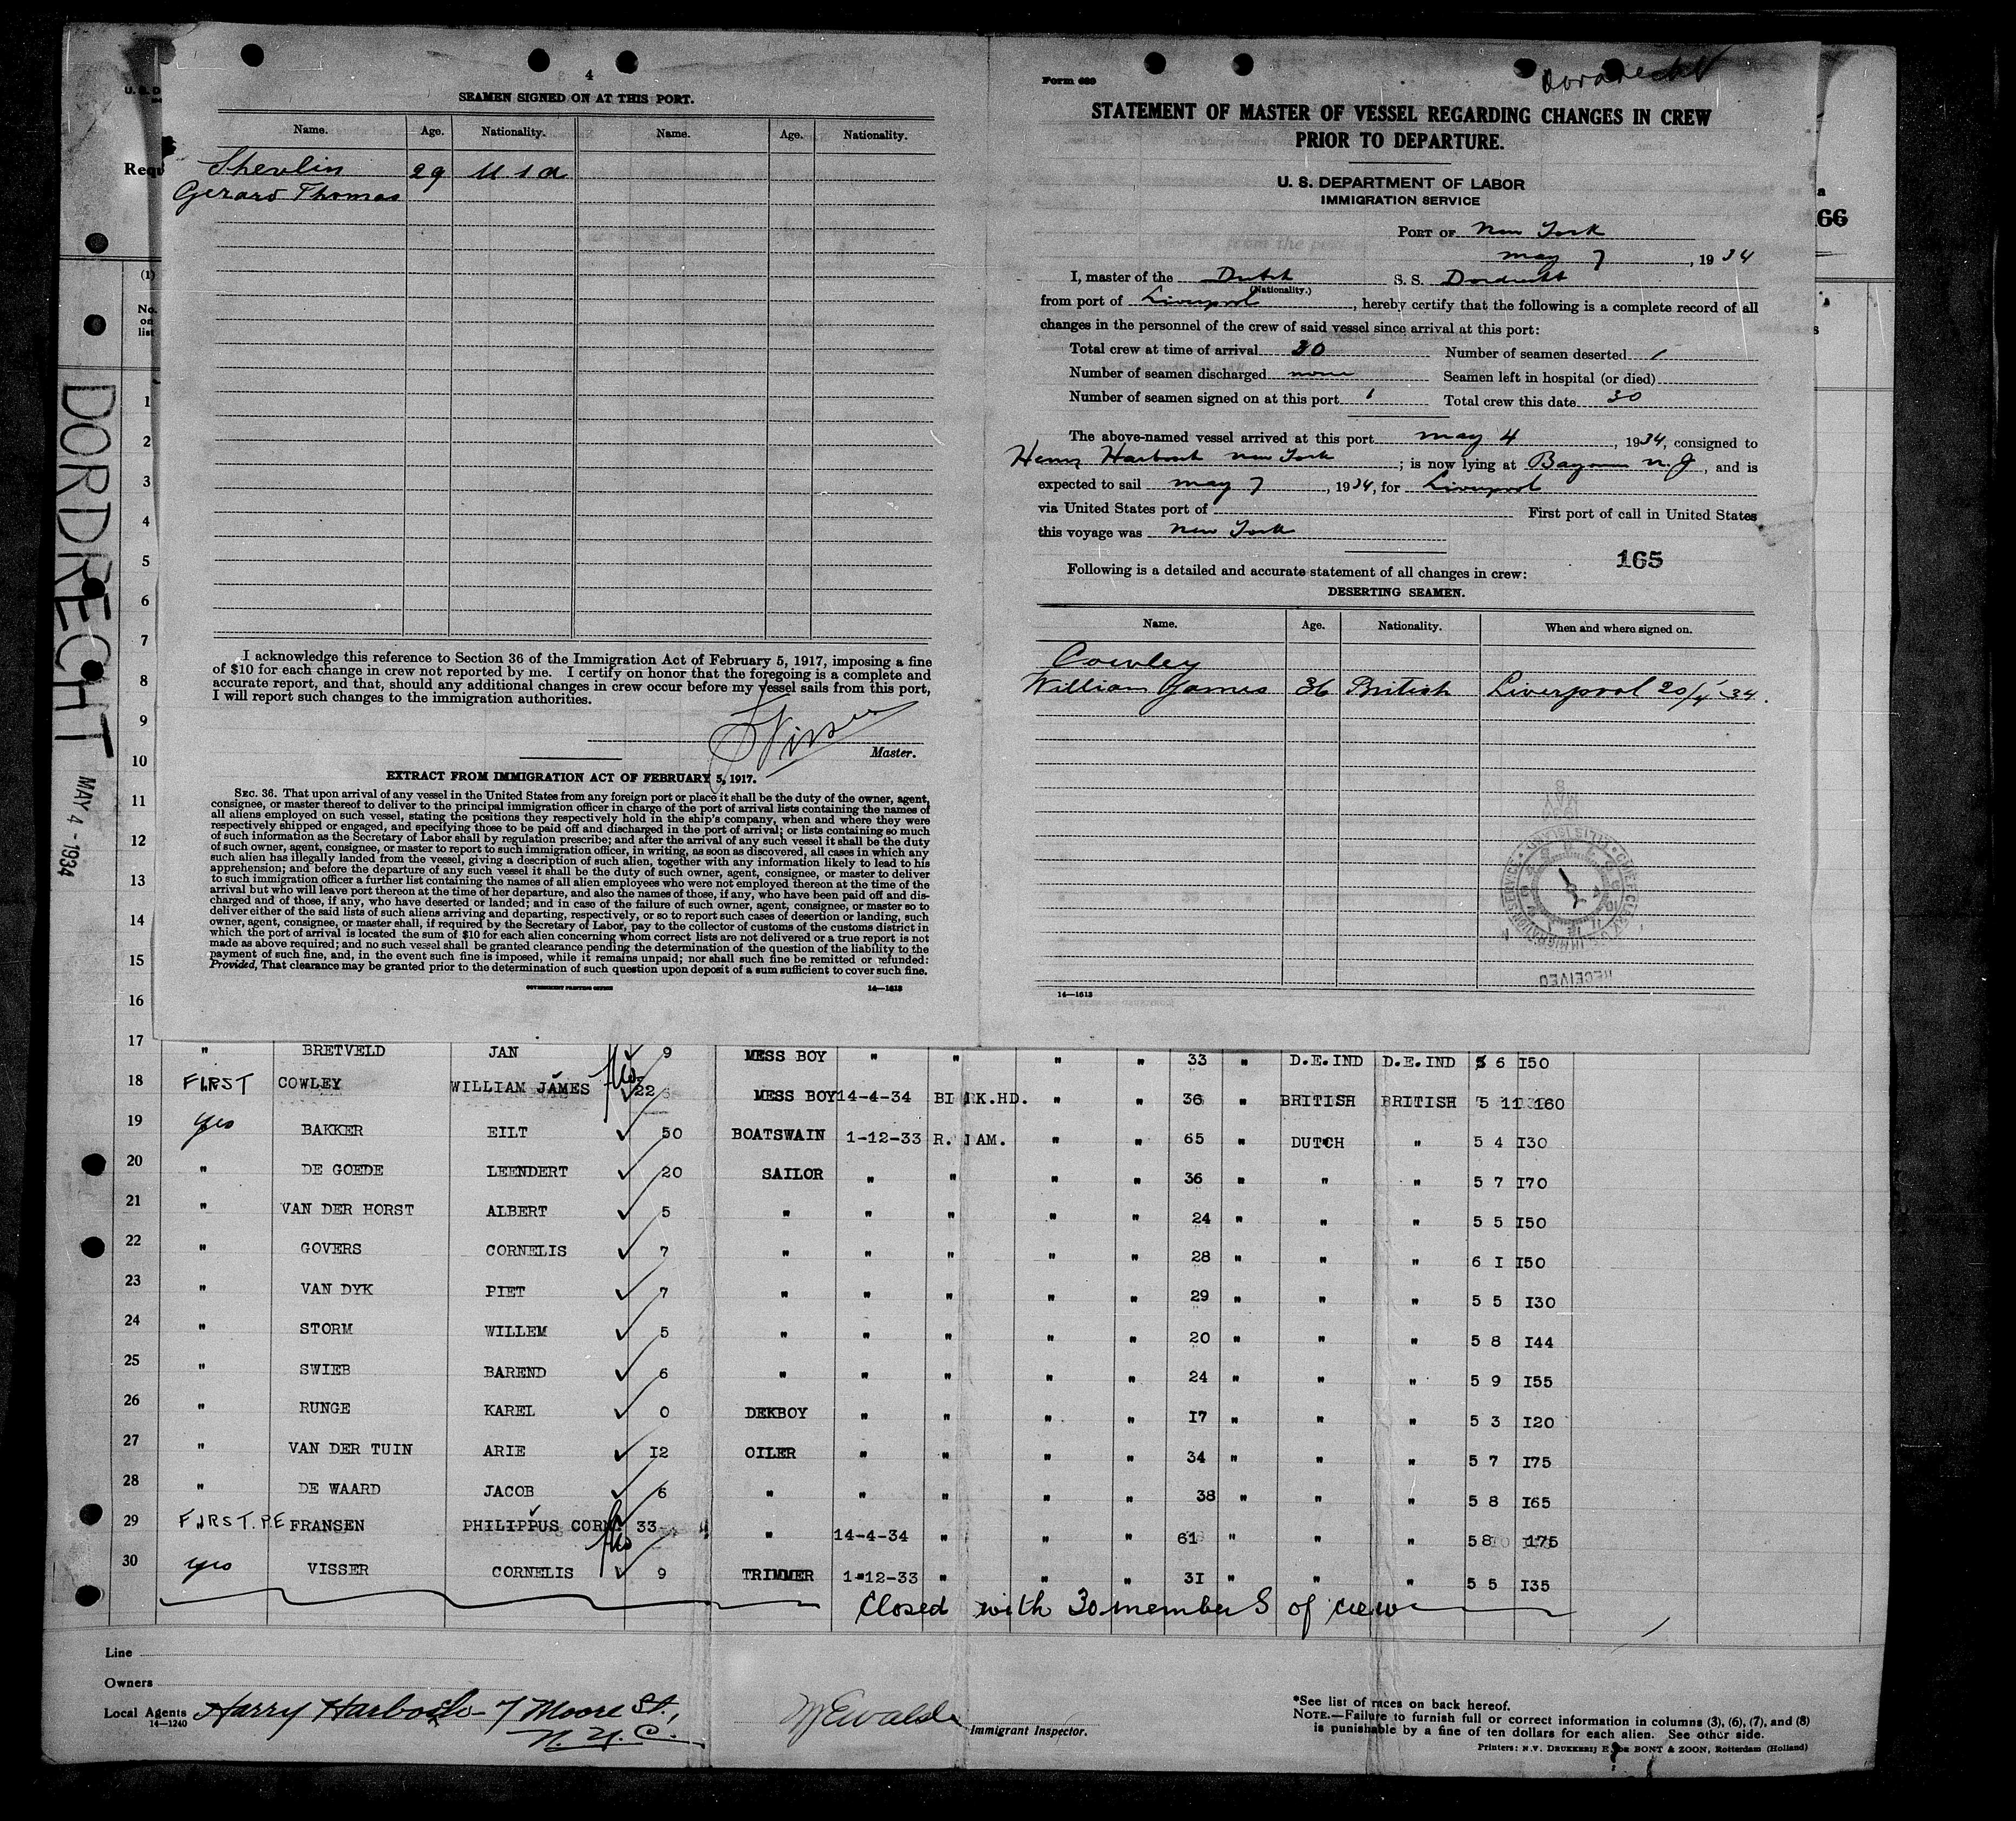 4
SEAMEN SIGNED ON AT THIS PORT.
Name. Age. Nationality. Name. Age. Nationality.
Shevlin 29 U S A
Gerard Thomas
I acknowledge this reference to Section 36 of the Immigration Act of February 5, 1917, imposing a fine
of $10 for each change in crew not reported by me. I certify on honor that the foregoing is a complete and
accurate report, and that, should any additional changes in crew occur before my vessel sails from this port,
I will report such changes to the immigration authorities.
Visser
Master.
EXTRACT FROM IMMIGRATION ACT OF FEBRUARY 5, 1917.
SEC. 36. That upon arrival of any vessel in the United States from any foreign port or place it shall be the duty of the owner, agent,
consignee, or master thereof to deliver to the principal immigration officer in charge of the port of arrival lists containing the names of
all aliens employed on such vessel, stating the positions they respectively hold in the ship's company, when and where they were
respectively shipped or engaged, and specifying those to be paid off and discharged in the port of arrival; or lists containing so much
of such information as the Secretary of Labor shall by regulation prescribe; and after the arrival of any such vessel it shall be the duty
of such owner, agent, consignee, or master to report to such immigration officer, in writing, as soon as discovered, all cases in which any
such alien has illegally landed from the vessel, giving a description of such alien, together with any information likely to lead to his
apprehension; and before the departure of any such vessel it shall be the duty of such owner, agent, consignee, or master to deliver
to such immigration officer a further list containing the names of all alien employees who were not employed thereon at the time of the
arrival but who will leave port thereon at the time of her departure, and also the names of those, if any, who have been paid off and dis-
charged and of those, if any, who have deserted or landed; and in case of the failure of such owner, agent, consignee, or master so to
deliver either of the said lists of such aliens arriving and departing, respectively, or so to report such cases of desertion or landing, such
owner, agent, consignee, or master shall, if required by the Secretary of Labor, pay to the collector of customs of the customs district in
which the port of arrival is located the sum of $10 for each alien concerning whom correct lists are not delivered or a true report is not
made as above required; and no such vessel shall be granted clearance pending the determination of the question of the liability to the
payment of such fine, and, in the event such fine is imposed, while it remains unpaid; nor shall such fine be remitted or refunded:
Provided, That clearance may be granted prior to the determination of such question upon deposit of a sum sufficient to cover such fine.
GOVERNMENT PRINTING OFFICE 14—1613
Form 689
Dordrecht
STATEMENT OF MASTER OF VESSEL REGARDING CHANGES IN CREW
PRIOR TO DEPARTURE.
U. S. DEPARTMENT OF LABOR
IMMIGRATION SERVICE
PORT OF New York
May 7, 1934
I, master of the Dutch S. S. Dordrecht
(Nationality.)
from port of Liverpool, hereby certify that the following is a complete record of all
changes in the personnel of the crew of said vessel since arrival at this port:
Total crew at time of arrival 30 Number of seamen deserted 1
Number of seamen discharged none Seamen left in hospital (or died)
Number of seamen signed on at this port 1 Total crew this date 30
The above-named vessel arrived at this port May 4, 1934, consigned to
Henry Harboch New York; is now lying at Bayonne N.J, and is
expected to sail May 7, 1934, for Liverpool
via United States port of First port of call in United States
this voyage was New York
165
Following is a detailed and accurate statement of all changes in crew:
DESERTING SEAMEN.
Name. Age. Nationality. When and where signed on.
Cowley
William James 36 British Liverpool 20/4-34.
RECEIVED
14—1613
Requ
66
(1)
No. on list
DORDRECHT
MAY 4 - 1934
1
2
3
4
5
6
7
8
9
10
11
12
13
14
15
16
17 " BRETVELD JAN 9 MESS BOY " " " " 33 " D.E.IND D.E.IND 5 6 150
18 FIRST COWLEY WILLIAM JAMES 22 MESS BOY 14-4-34 BIRK.HD. " " 36 " BRITISH BRITISH 5 11 160
19 yes BAKKER EILT 50 BOATSWAIN 1-12-33 R.DAM. " " 65 " DUTCH " 5 4 130
20 " DE GOEDE LEENDERT 20 SAILOR " " " " 36 " " " 5 7 170
21 " VAN DER HORST ALBERT 5 " " " " " 24 " " " 5 5 150
22 " GOVERS CORNELIS 7 " " " " " 28 " " " 6 1 150
23 " VAN DYK PIET 7 " " " " " 29 " " " 5 5 130
24 " STORM WILLEM 5 " " " " " 20 " " " 5 8 144
25 " SWIEB BAREND 6 " " " " " 24 " " " 5 9 155
26 " RUNGE KAREL 0 DEKBOY " " " " 17 " " " 5 3 120
27 " VAN DER TUIN ARIE 12 OILER " " " " 34 " " " 5 7 175
28 " DE WAARD JACOB 6 " " " " " 38 " " " 5 8 165
29 FIRST.P.E FRANSEN PHILIPPUS CORN. 33 " 14-4-34 " " " 61 " " " 5 8 175
30 yes VISSER CORNELIS 9 TRIMMER 1-12-33 " " " 31 " " " 5 5 135
Closed with 30 members of crew
Line
Owners
Local Agents Harry Harboch - 7 Moore St.,
14—1240 N.Y.C.
Immigrant Inspector.
*See list of races on back hereof.
NOTE.—Failure to furnish full or correct information in columns (3), (6), (7), and (8)
is punishable by a fine of ten dollars for each alien. See other side.
Printers: N.V. DRUKKERIJ E. DE BONT & ZOON, Rotterdam (Holland)